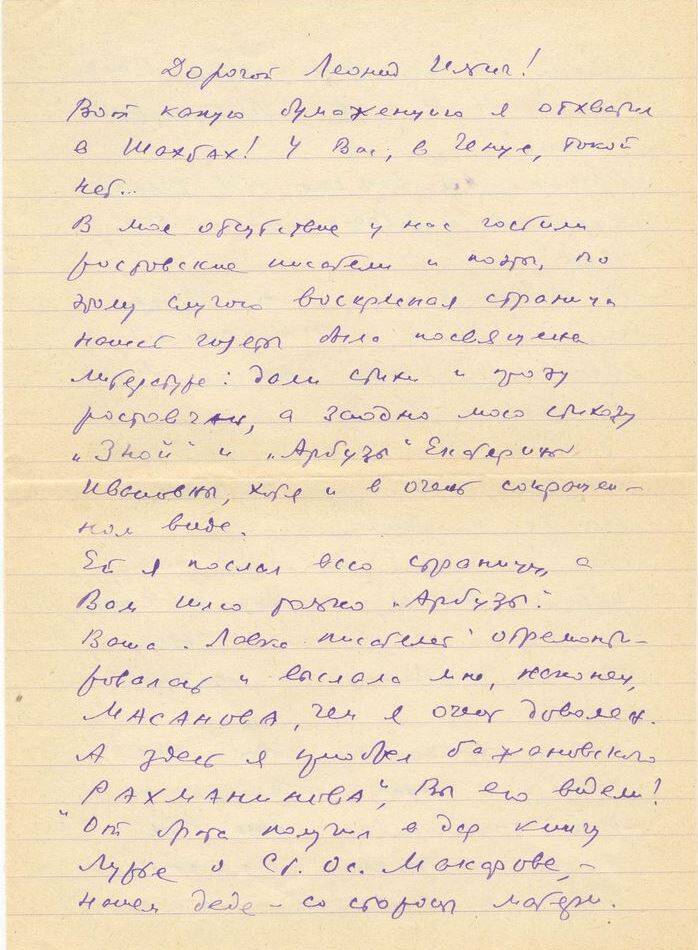 Дорогой Леонид Ильич!
Вот какую бумаженцию я отхватил
в Шахтах! У Вас, в Генуе, такой
нет...
В мое отсутствие у нас гостили
ростовские писатели и поэты, по
этому случаю воскресная страница
нашей газеты была посвящена
литературе: дали стихи и прозу
ростовчан, а заодно мою
"Зной" и "Арбузы" Екатерины
Ивановны, хотя и в очень сокращен-
ном виде.
Ей я послал всю страницу, а
Вам шлю только "Арбузы".
Ваша "Лавка писателей" отремонти-
ровалась и выслала мне, наконец,
МАСАНОВА, чем я очень доволен.
А здесь я приобрел бажановского
"РАХМАНИНОВА", Вы его видели?
От брата получил в дар книгу
Лурье о Ст. Ос. Макарове, –
нашем деде – со стороны матери.